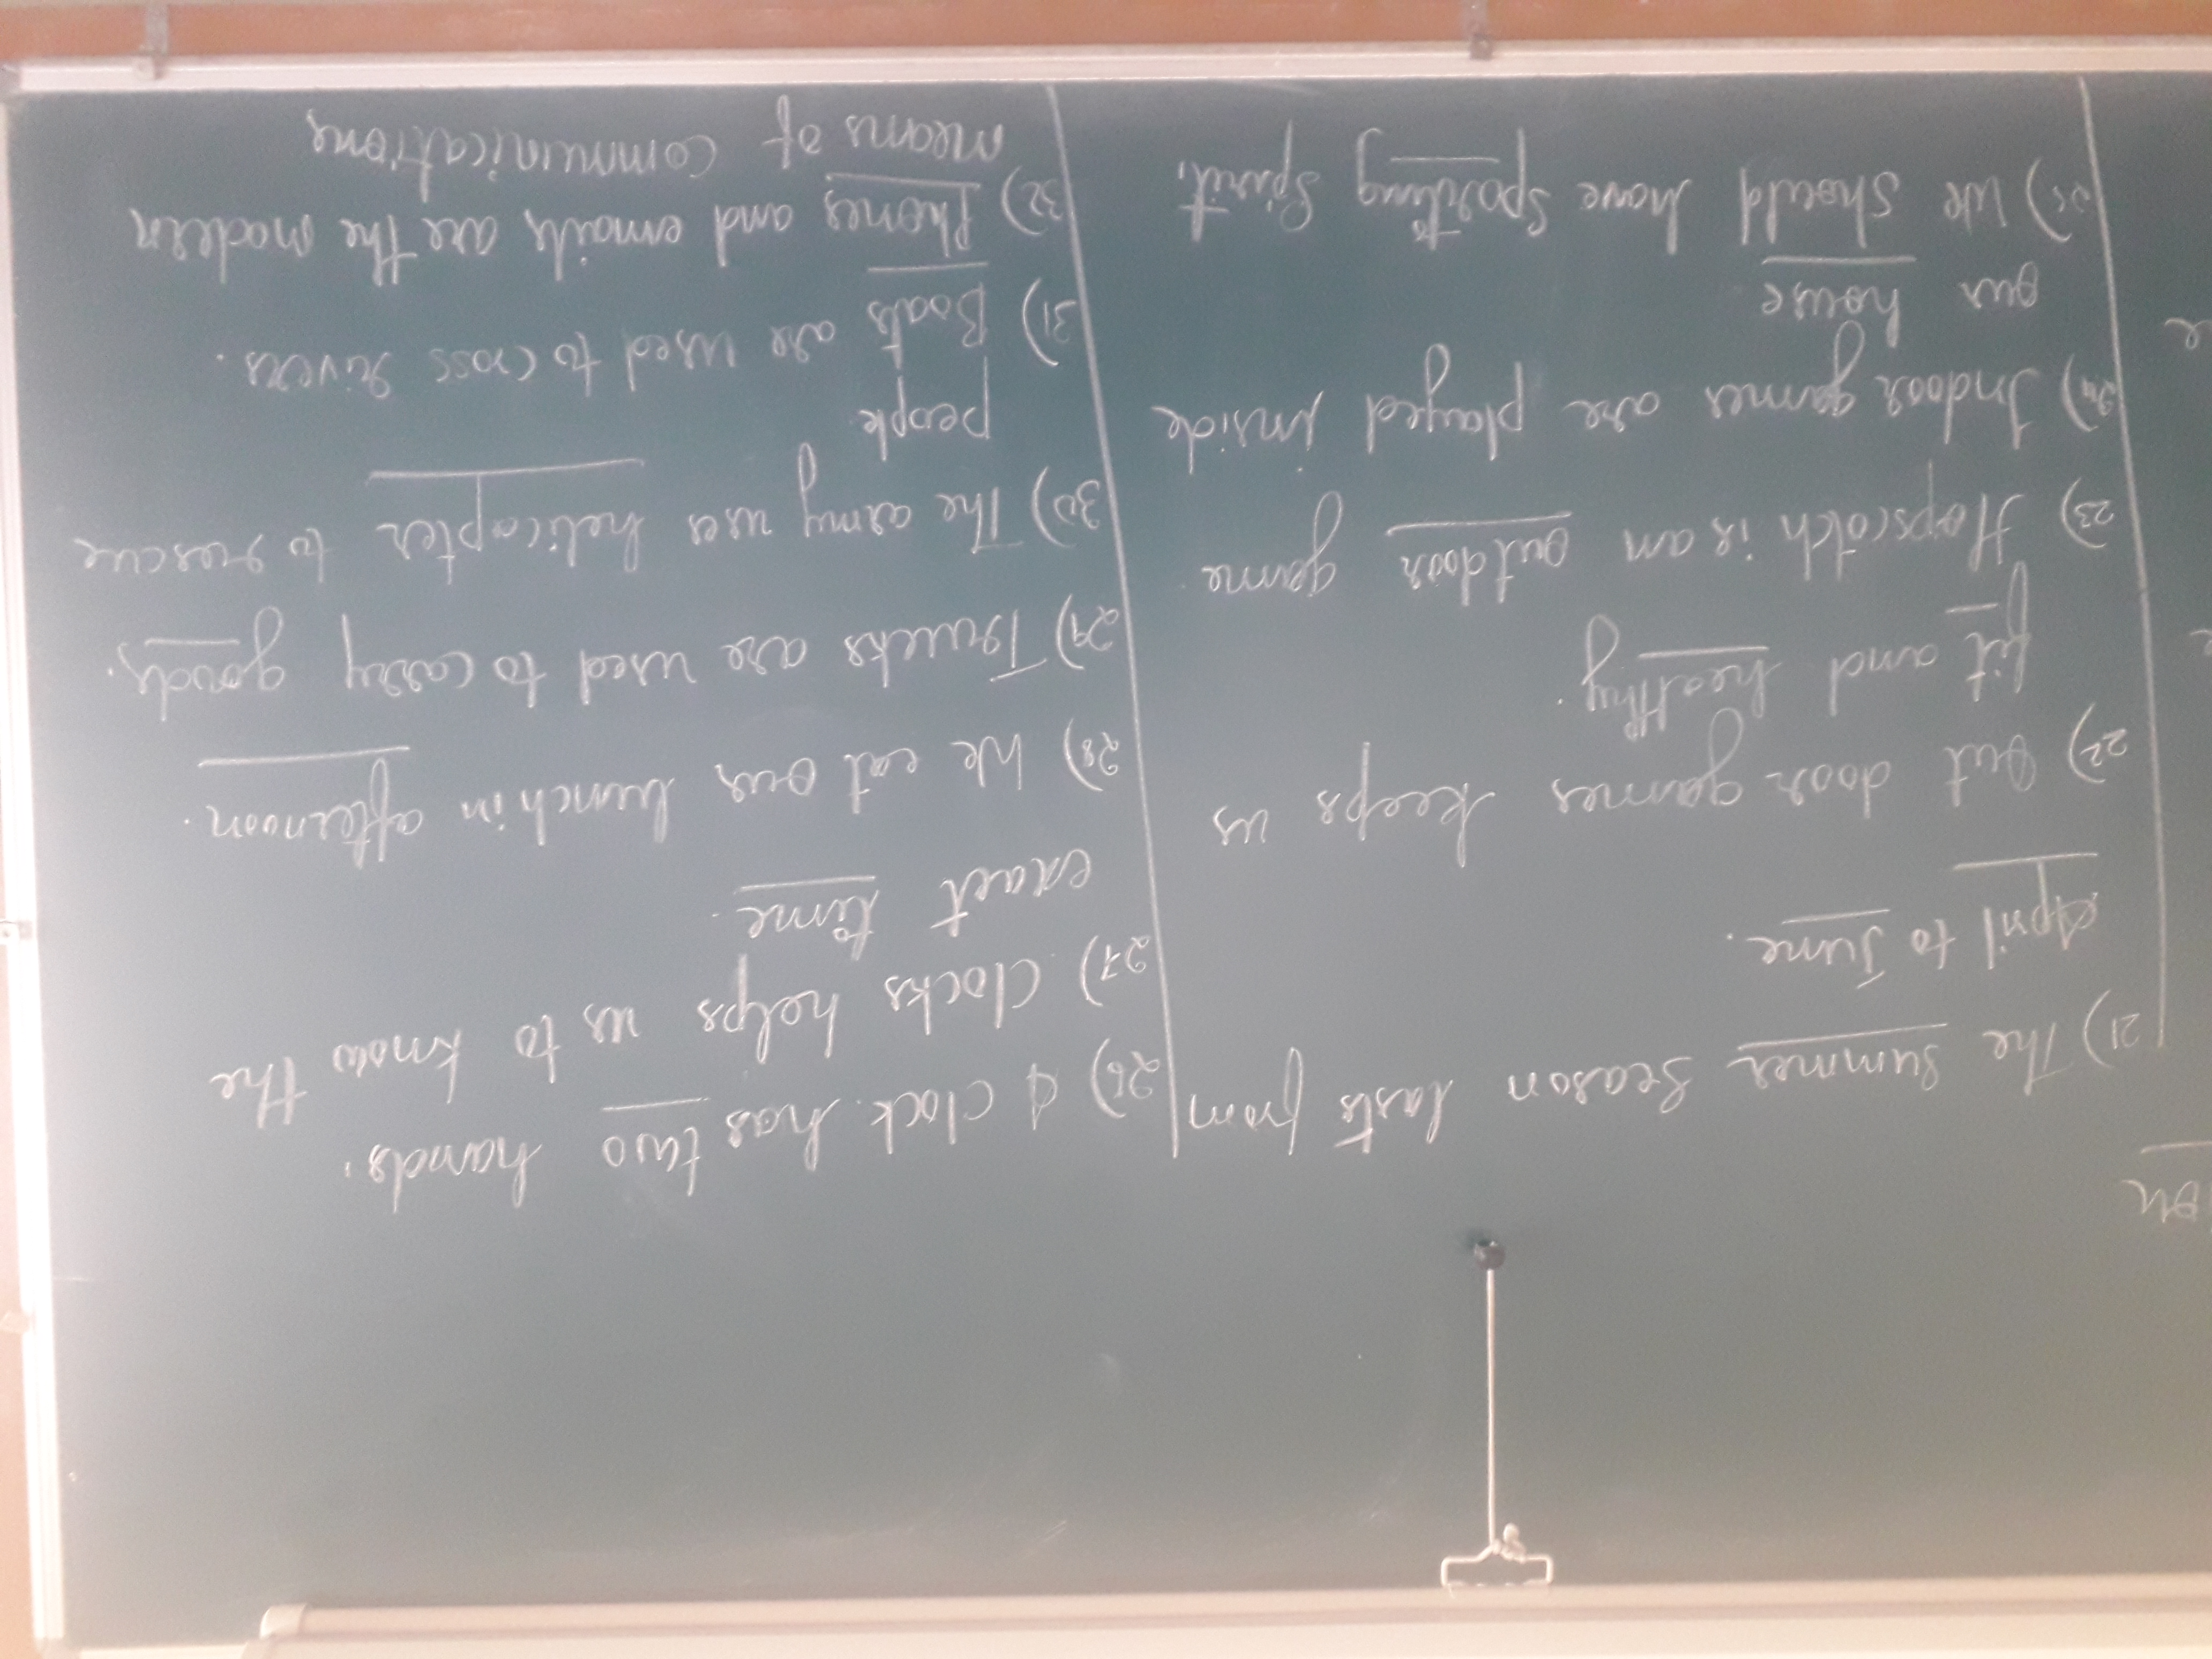 21) The summer season lasts from
April to June.
22) Out door games keeps us
fit and healthy.
23) Hopscotch is an outdoor game.
24) Indoor games are played inside
our house
25) We should have sporting spirit.
26) A clock has two hands.
27) Clocks helps us to know the
exact time.
28) We eat our lunch in afternoon.
29) Trucks are used to carry goods.
30) The army uses helicopter to rescue
people
31) Boats are used to cross rivers.
32) Phones and emails are the modern
means of communications